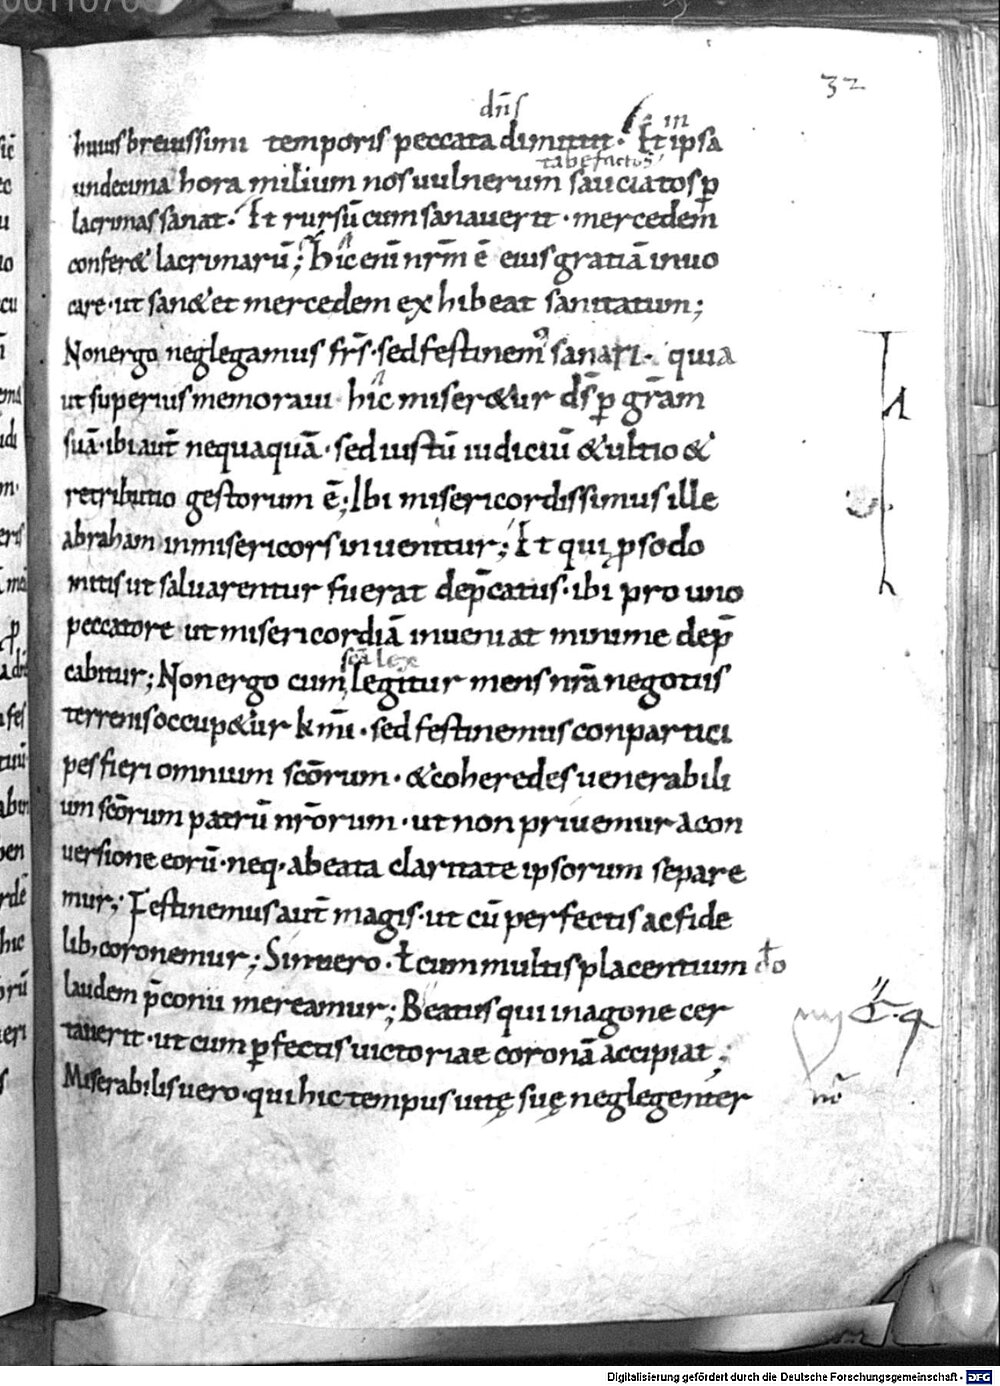 32
dn̄s
huius breuissimi temporis peccata dimittit. Et in ipsa
tabefactos
undecima hora milium nos uulnerum sauciatos ꝑ
lacrimas sanat. Et rursū cum sanauerit · mercedem
confer& lacrimarū; Hic enī nr̄m ē eius gratiā inuo
care · ut san& et mercedem exhibeat sanitatum;
Non ergo neglegamus fr̄s · sed festinem' sanari · quia
ut superius memoraui hic miser&ur ds̄ ꝑ gr̄am
suā · ibi aut̄ nequaquā · sed iustū iudiciū & ultio &
retributio gestorum ē; Ibi misericordissimus ille
abraham inmisericors inuenitur; Et qui ꝓ sodo
mitis ut saluarentur fuerat dep̄catus · ibi pro uno
peccatore ut misericordiā inueniat minime dep̄
scā lex
cabitur; Non ergo cum legitur mens nr̄a negotiis
terrenis occup&ur km̄i · sed festinemus conpartici
pes fieri omnium scōrum · & coheredes uenerabili
um scōrum patrū nr̄orum · ut non priuemur a con
uersione eorū · neq· a beata claritate ipsorum separe
mur; Festinemus aut̄ magis · ut cū perfectis ac fide
lib; coronemur; Sin uero · ł cum multis placentium dō
laudem p̄conii mereamur; Beatus qui in agone cer
tauerit · ut cum ꝑfectis uictoriae coronā accipiat;
Miserabilis uero · qui hic tempus uitę suę neglegenter
Digitalisierung gefördert durch die Deutsche Forschungsgemeinschaft - DFG